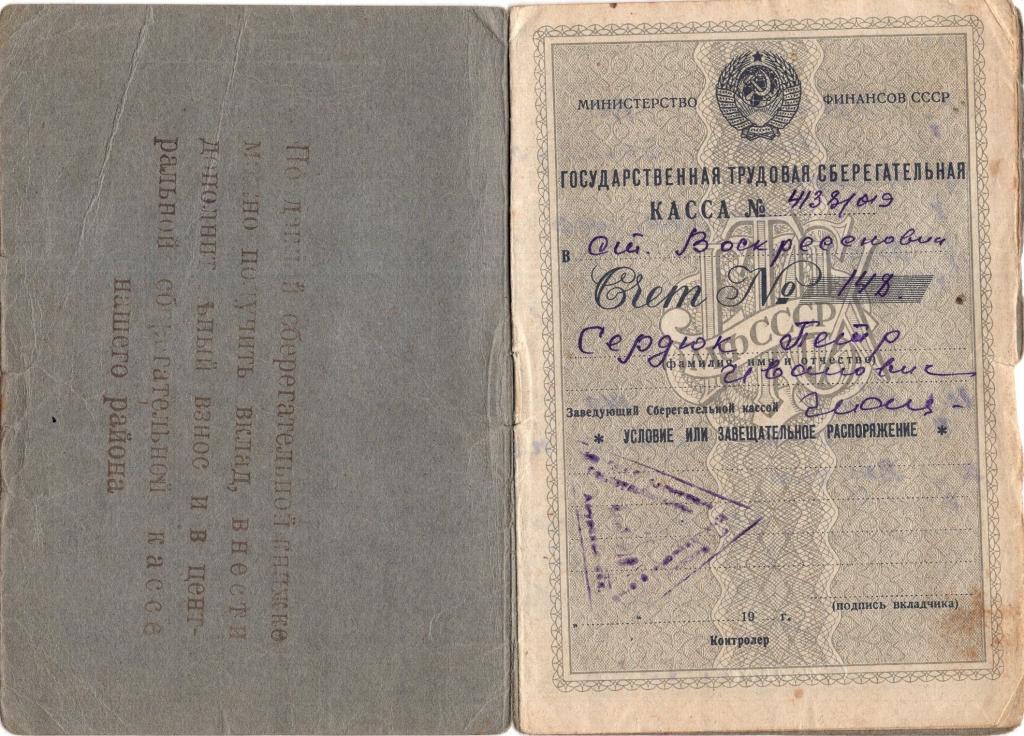 По дан й сберегательной книжке
можно получить вклад, внести
дополнит ьный взнос и в цент-
ральной сберегательной кассе
нашего района
МИНИСТЕРСТВО ФИНАНСОВ СССР
ГОСУДАРСТВЕННАЯ ТРУДОВАЯ СБЕРЕГАТЕЛЬНАЯ
КАССА № 4138/019
в ст. Воскресеновки
Счет № 148
ГТСК СССР
Сердюк Петр
(фамилия, имя и отчество)
Иванович
Заведующий Сберегательной кассой
* УСЛОВИЕ ИЛИ ЗАВЕЩАТЕЛЬНОЕ РАСПОРЯЖЕНИЕ *
(подпись вкладчика)
„ “ 19 г.
Контролер